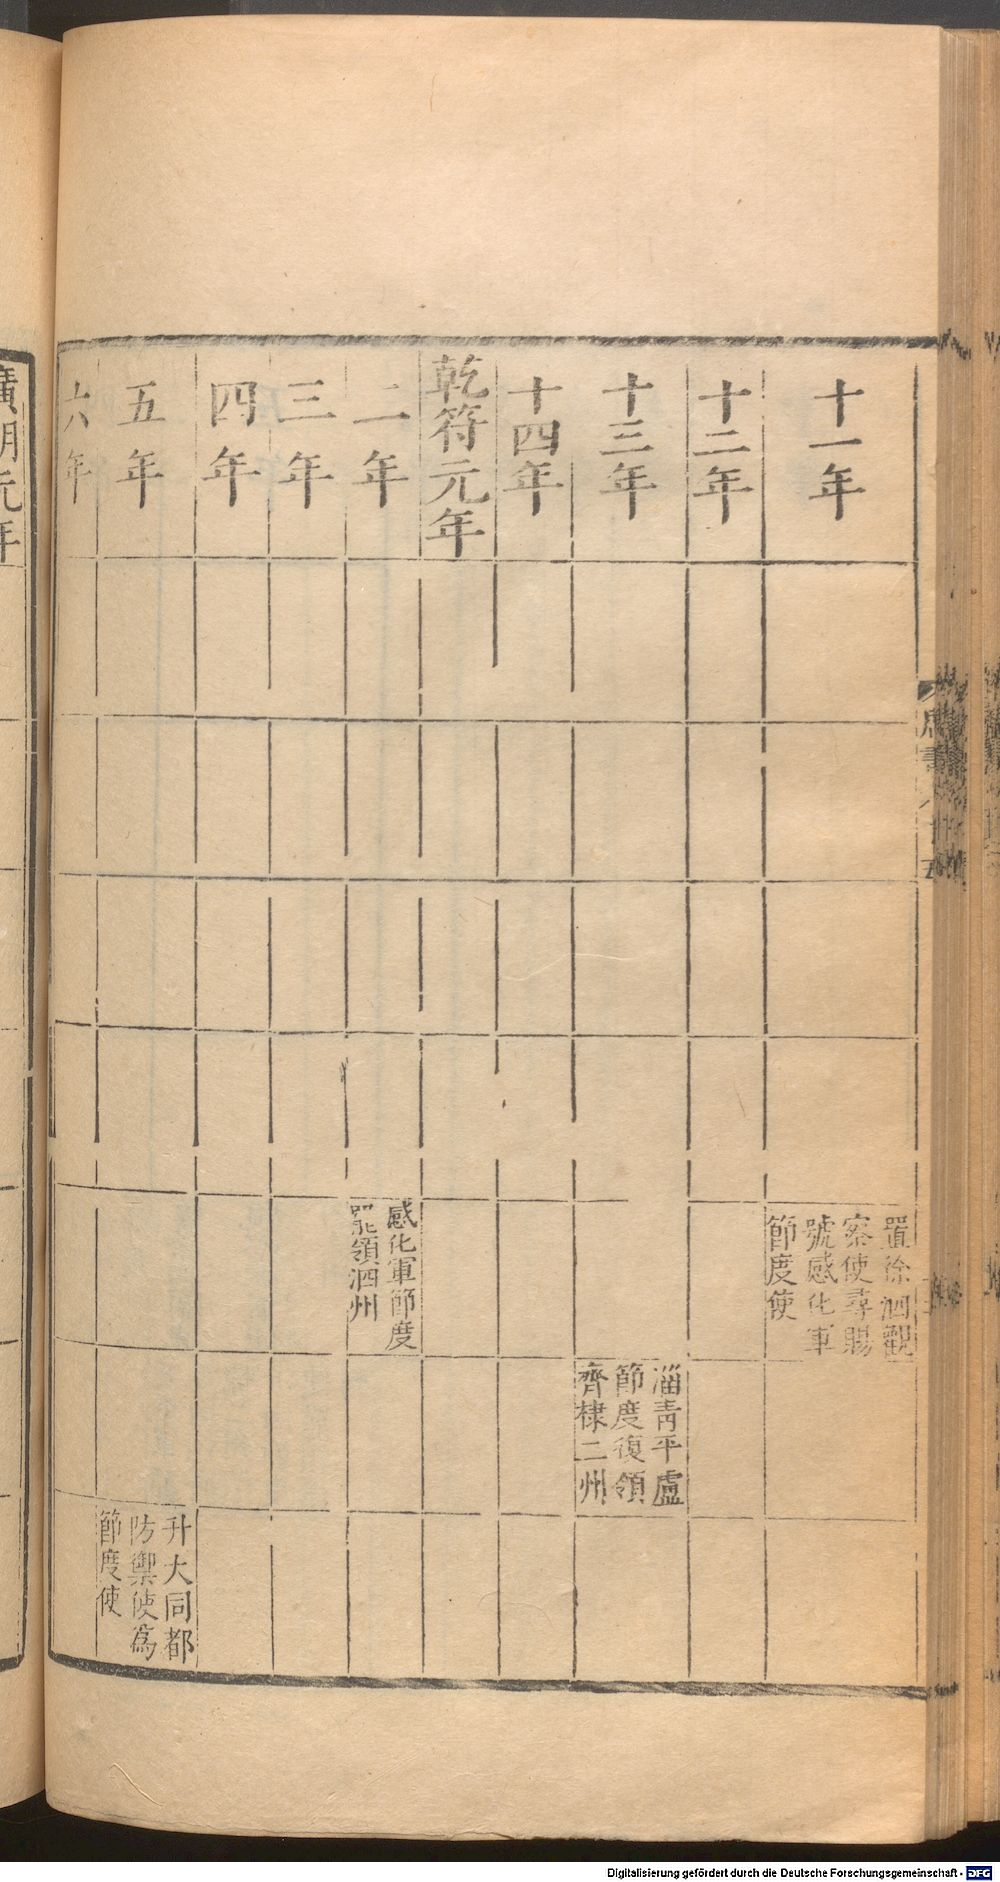 十一年
置徐泗觀
察使尋賜
號感化軍
節度使
十二年
十三年
淄青平盧
節度復領
齊棣二州
十四年
乾符元年
二年
感化軍節度
罷領泗州
三年
四年
五年
升大同都
防禦使爲
節度使
六年
廣明元年
Digitalisierung gefördert durch die Deutsche Forschungsgemeinschaft - DFG